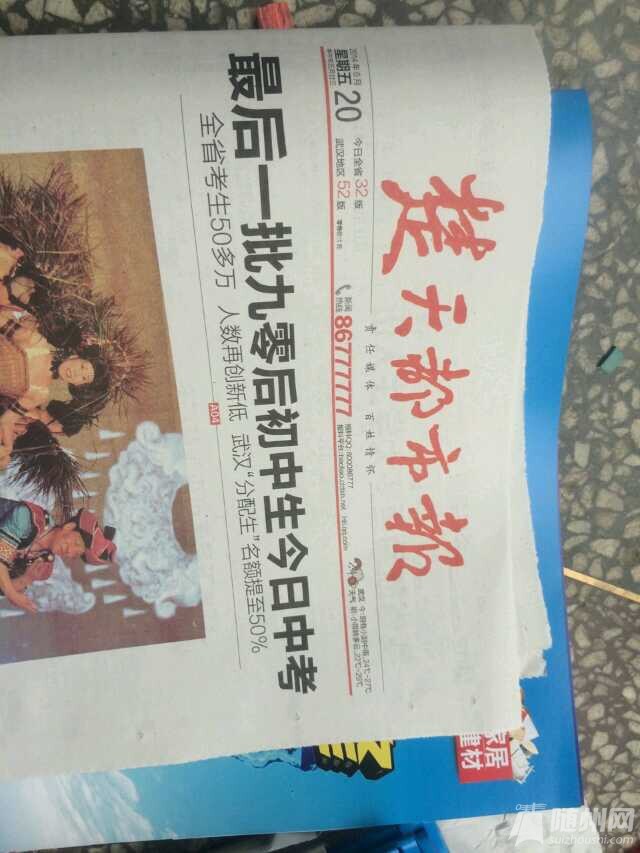 楚天都市报
责任媒体 百姓情怀
2014年6月
星期五
20
今日全省32版
武汉地区52版
新闻
热线
86777777
最后一批九零后初中生今日中考
全省考生50多万 人数再创新低 武汉“分配生”名额提至50%
A04
家居
建材
随州网
suizhoushi.com